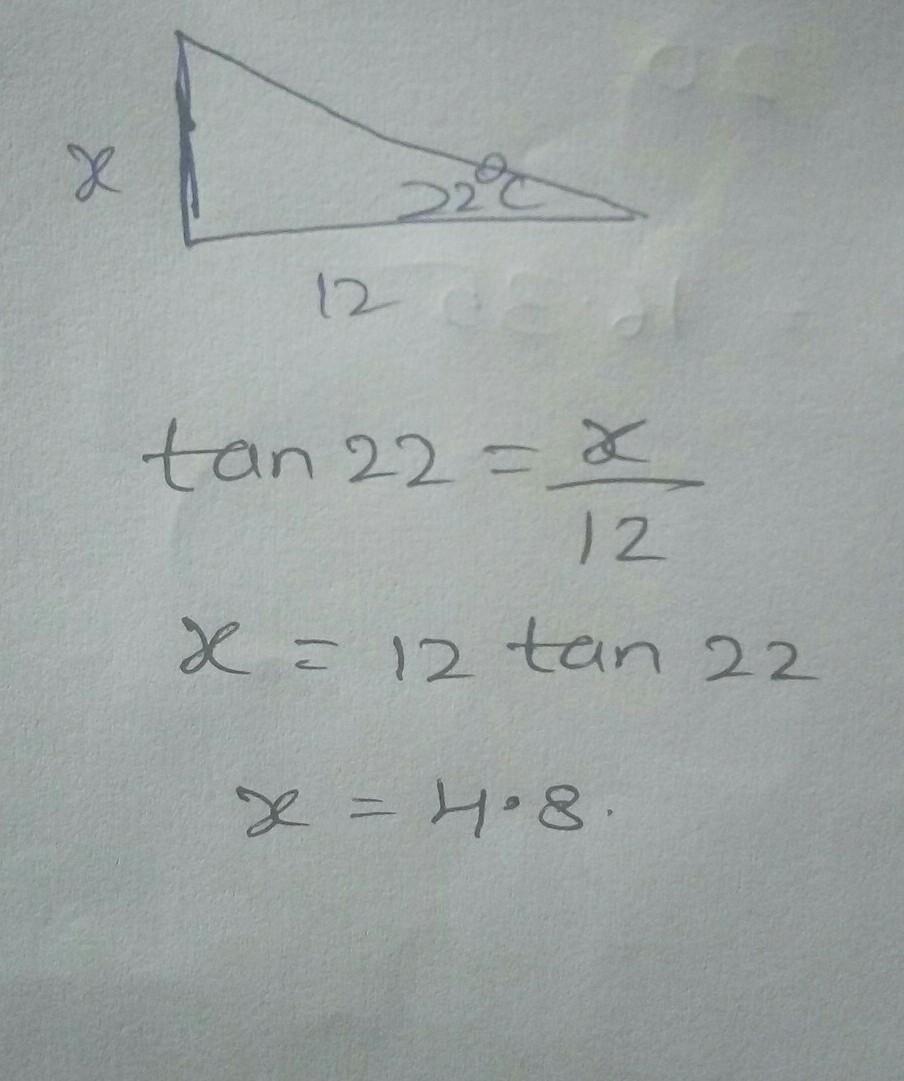 x
22°C
12
tan 22 = x/12
x = 12 tan 22
x = 4.8.